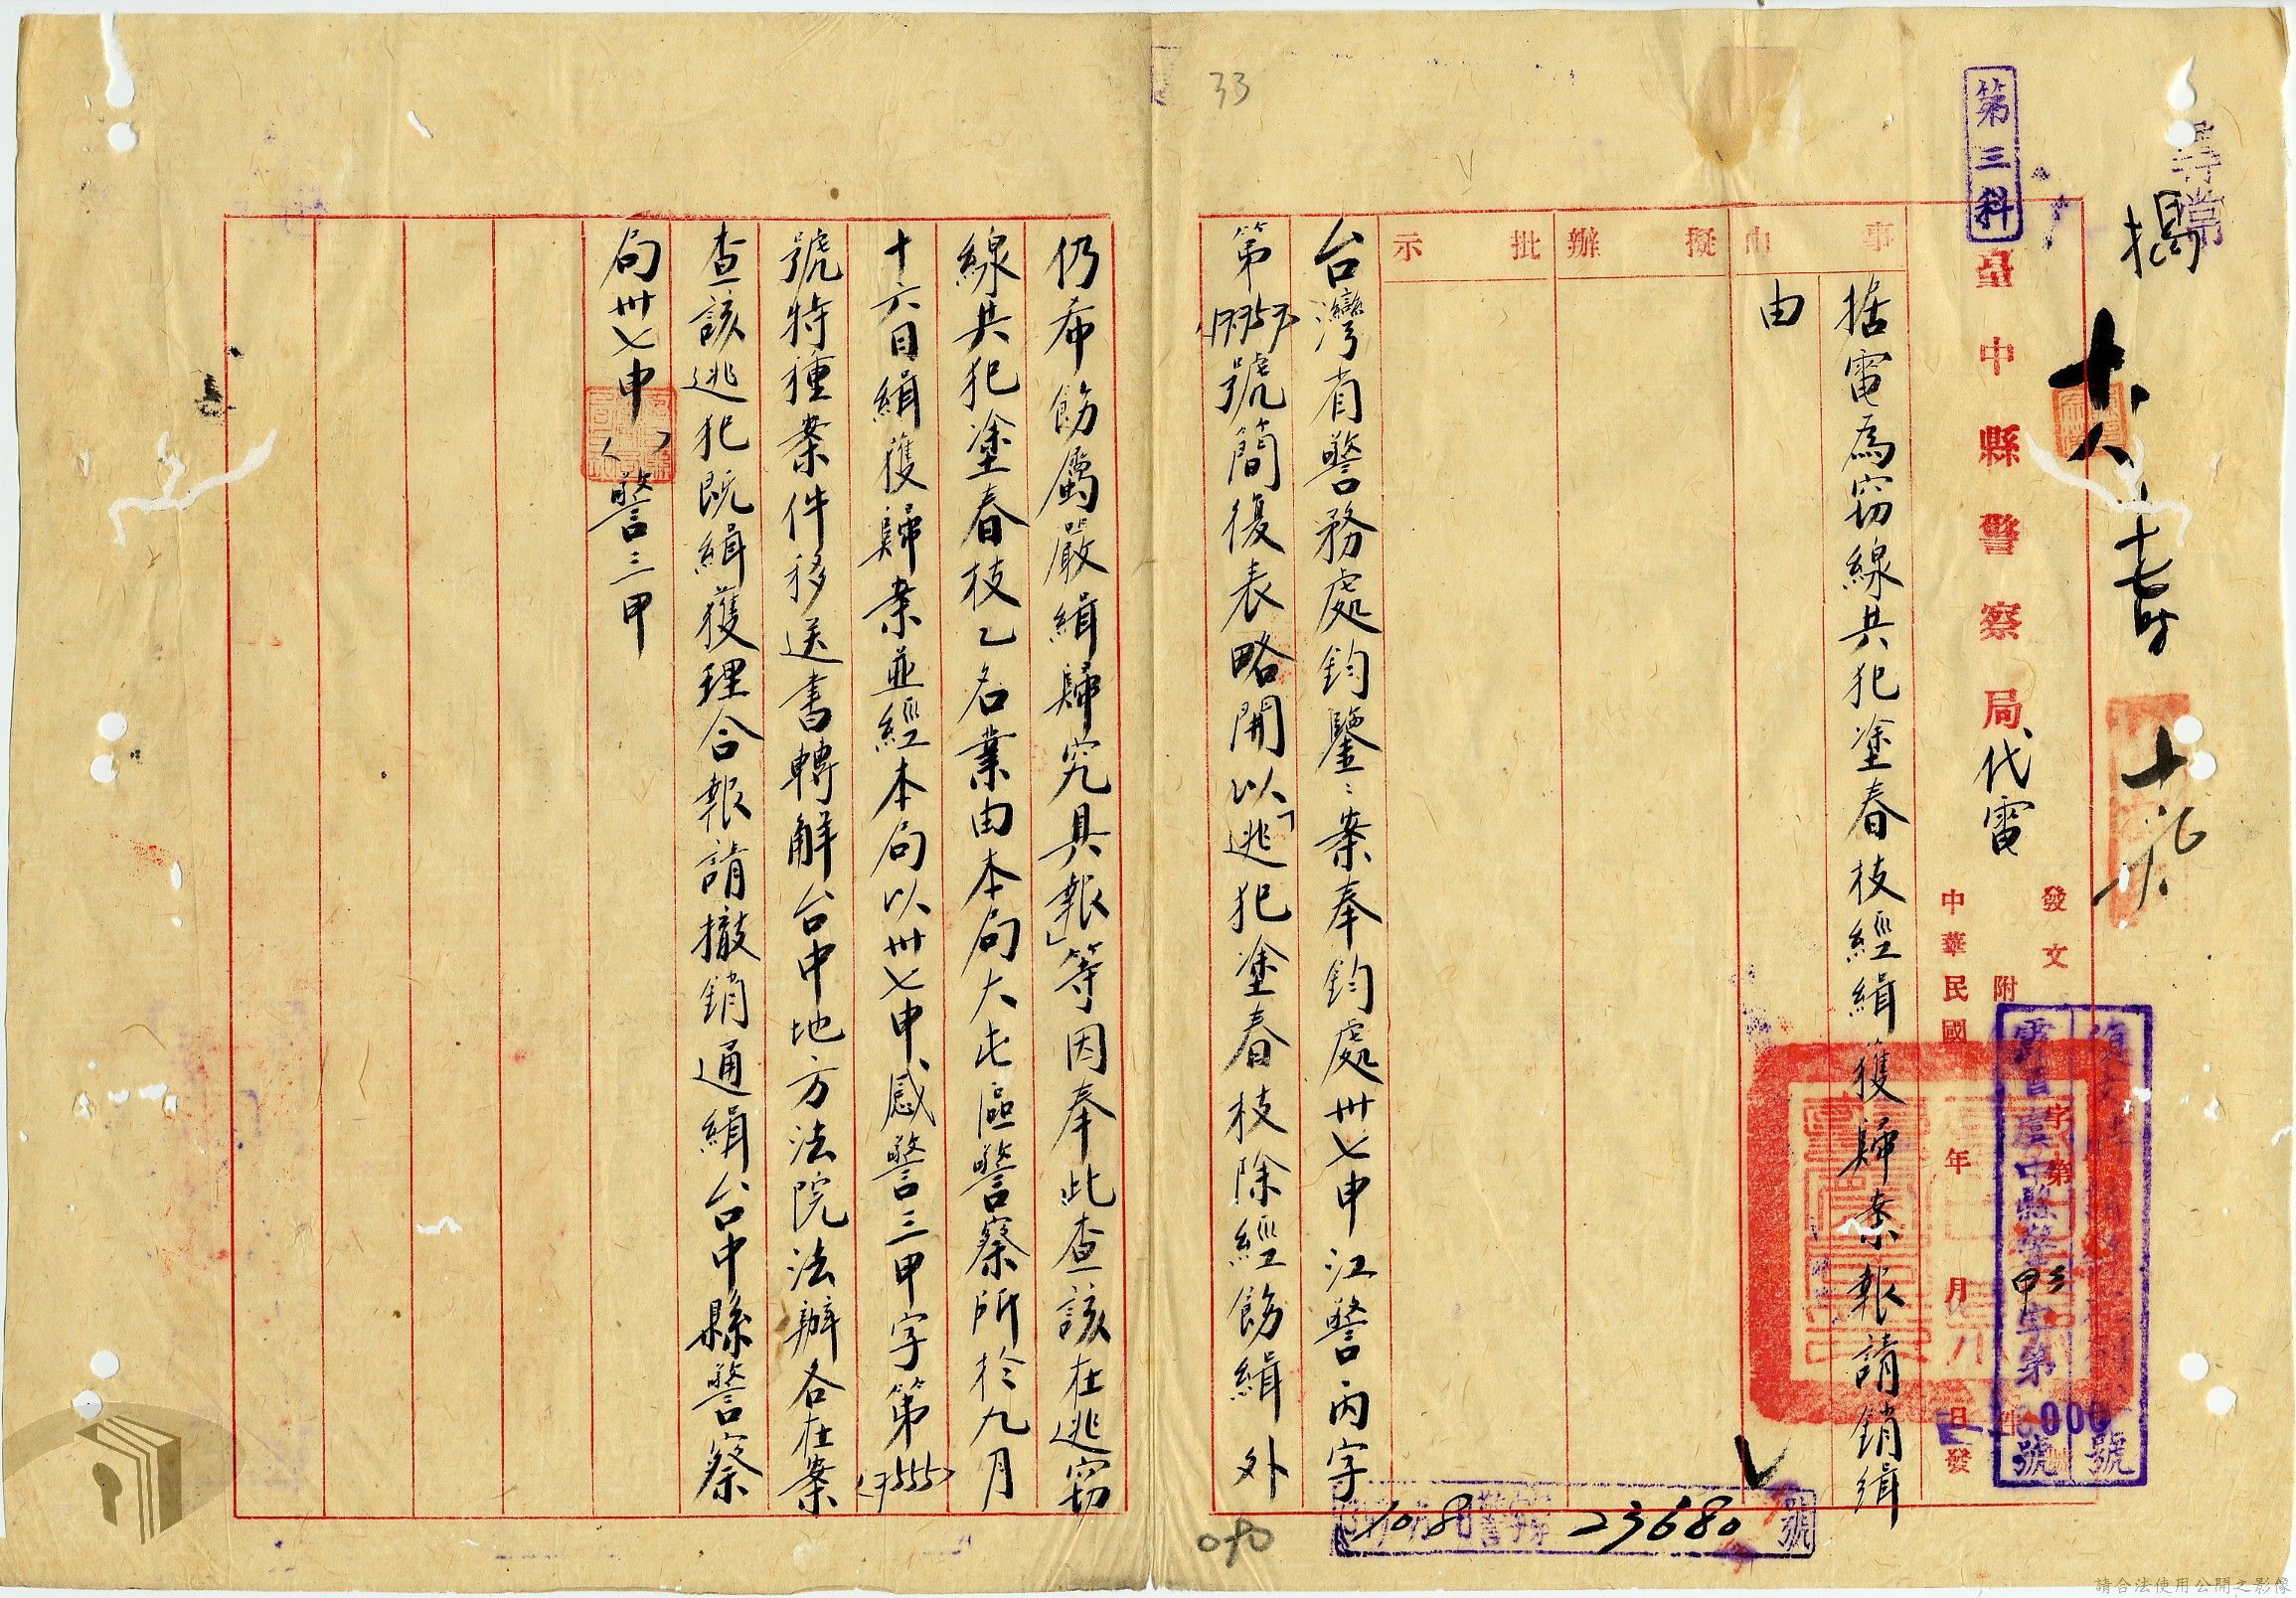 尋常
第三科
臺中縣警察局代電
發文
字第
號
附
中華民國
年
月
日發
000
號
事由
擬辦
批示
据電為窃線共犯塗春枝經緝獲歸案報請銷緝
由
台灣省警務處鈞鑒:案奉鈞處卅七申江警丙字
第17757號簡復表略開以「逃犯塗春枝除經飭緝外
仍希飭屬嚴緝歸究具報」等因奉此查該在逃窃
線共犯塗春枝乙名業由本局大屯區警察所於九月
十六日緝獲歸案並經本局以卅七申感警三甲字第
號特種案件移送書轉解台中地方法院法辦各在案
查該逃犯既緝獲理合報請撤銷通緝台中縣警察
局卅七申( )警三甲
10 8
23680
號
33
090
請合法使用公開之影像